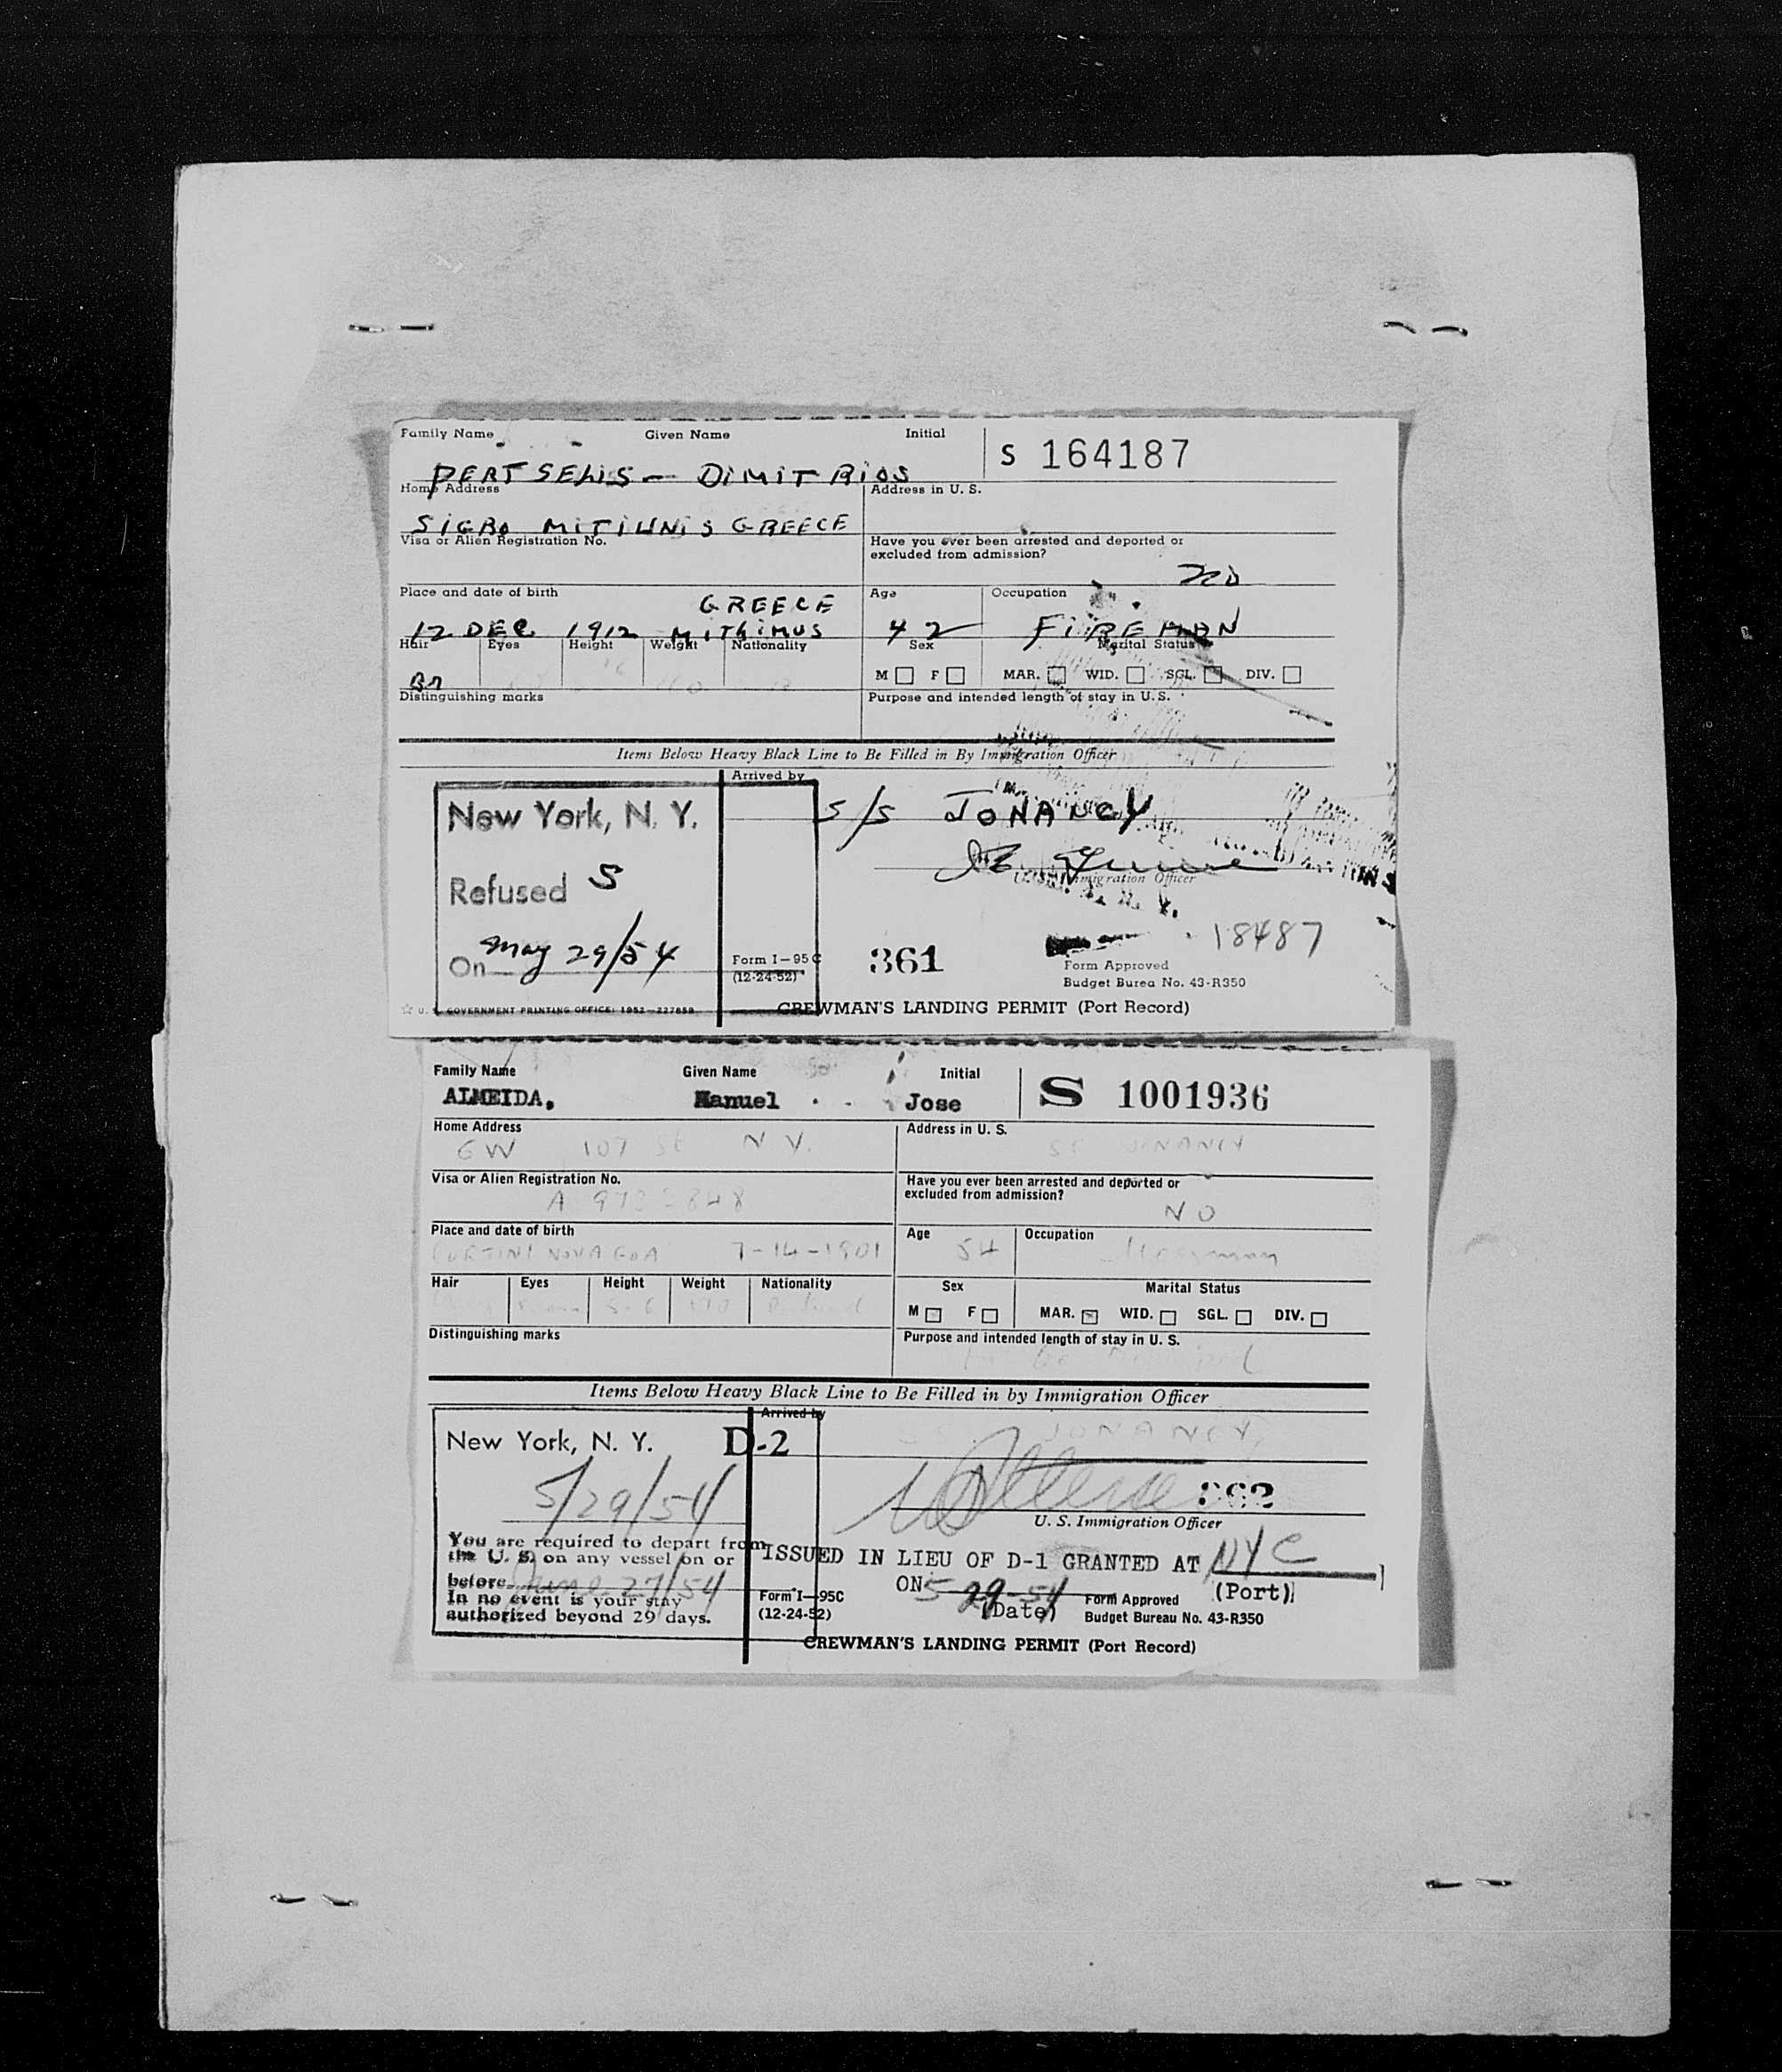 Family Name Given Name Initial S 164187
PERTSELIS - DIMITRIOS
Home Address Address in U. S.
GREECE
Visa or Alien Registration No. Have you ever been arrested and deported or
excluded from admission?
NO
Place and date of birth GREECE Age Occupation
12 DEC 1912 42 FIREMAN
Hair Eyes Height Weight Nationality Sex Marital Status
M F MAR. WID. SGL. DIV.
Distinguishing marks Purpose and intended length of stay in U. S.
Items Below Heavy Black Line to Be Filled in By Immigration Officer
Arrived by
New York, N. Y. S/S JONANCY
Refused S U. S. Immigration Officer
On May 29/54 18487
Form I-95C 361 Form Approved
(12-24-52) Budget Burea No. 43-R350
U. S. GOVERNMENT PRINTING OFFICE: 1952 CREWMAN'S LANDING PERMIT (Port Record)
Family Name Given Name Initial S 1001936
ALMEIDA, Manuel Jose
Home Address Address in U. S.
6 W 107 St N Y. JONANCY
Visa or Alien Registration No. Have you ever been arrested and deported or
excluded from admission?
A NO
Place and date of birth Age Occupation
NOVA GOA 7-14-1901 54
Hair Eyes Height Weight Nationality Sex Marital Status
M F MAR. WID. SGL. DIV.
Distinguishing marks Purpose and intended length of stay in U. S.
Items Below Heavy Black Line to Be Filled in by Immigration Officer
Arrived by
New York, N. Y. D-2 JONANCY
5/29/54
U. S. Immigration Officer
You are required to depart from
the U. S. on any vessel on or
before June 27/54
In no event is your stay
authorized beyond 29 days.
ISSUED IN LIEU OF D-1 GRANTED AT NYC
ON 5-29-54 (Port)
(Date)
Form I-95C Form Approved
(12-24-52) Budget Bureau No. 43-R350
CREWMAN'S LANDING PERMIT (Port Record)